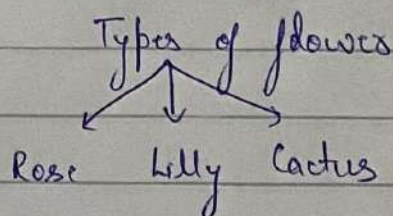 Types of flower
Rose Lilly Cactus